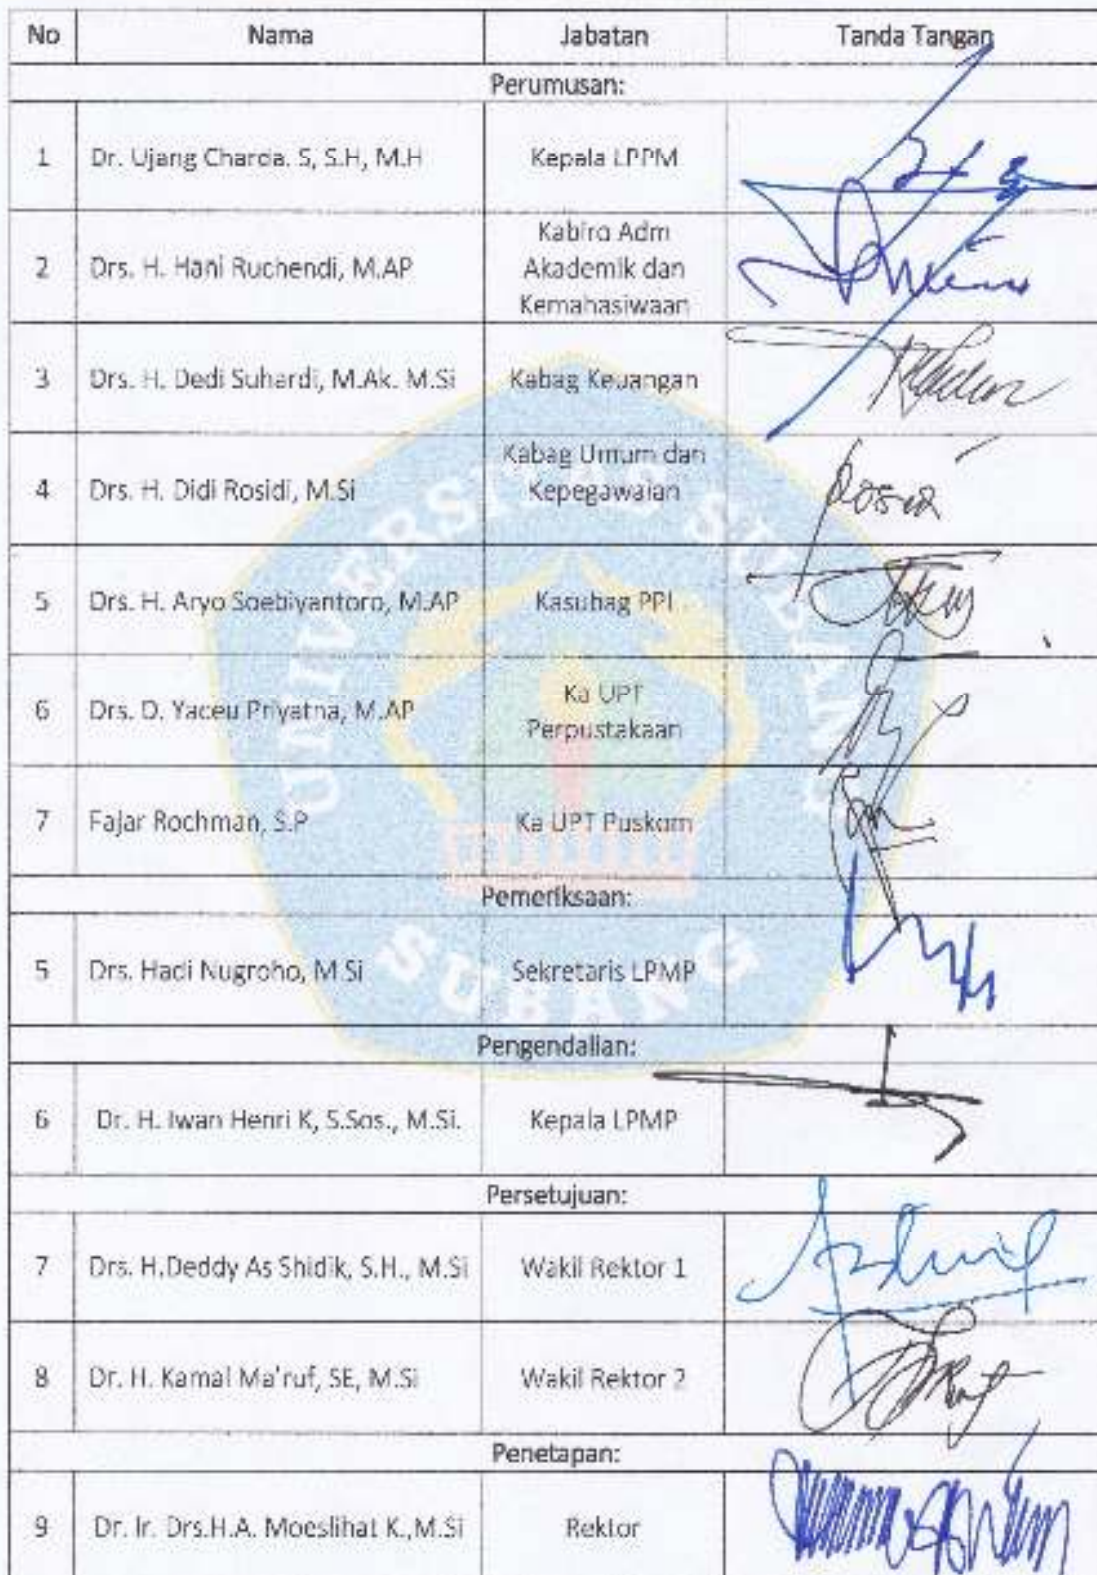 No Nama Jabatan Tanda Tangan
Perumusan:
1 Dr. Ujang Charda. S, S.H, M.H Kepala LPPM
2 Drs. H. Hani Ruchendi, M.AP Kabiro Adm
Akademik dan
Kemahasiwaan
3 Drs. H. Dedi Suhardi, M.Ak. M.Si Kabag Keuangan
4 Drs. H. Didi Rosidi, M.Si Kabag Umum dan
Kepegawaian
5 Drs. H. Aryo Soebiyantoro, M.AP Kasubag PPI
6 Drs. D. Yaceu Priyatna, M.AP Ka UPT
Perpustakaan
7 Fajar Rochman, S.P Ka UPT Puskom
Pemeriksaan:
5 Drs. Hadi Nugroho, M.Si Sekretaris LPMP
Pengendalian:
6 Dr. H. Iwan Henri K, S.Sos., M.Si. Kepala LPMP
Persetujuan:
7 Drs. H.Deddy As Shidik, S.H., M.Si Wakil Rektor 1
8 Dr. H. Kamal Ma'ruf, SE, M.Si Wakil Rektor 2
Penetapan:
9 Dr. Ir. Drs.H.A. Moeslihat K.,M.Si Rektor
UNIVERSITAS SUBANG
SUBANG